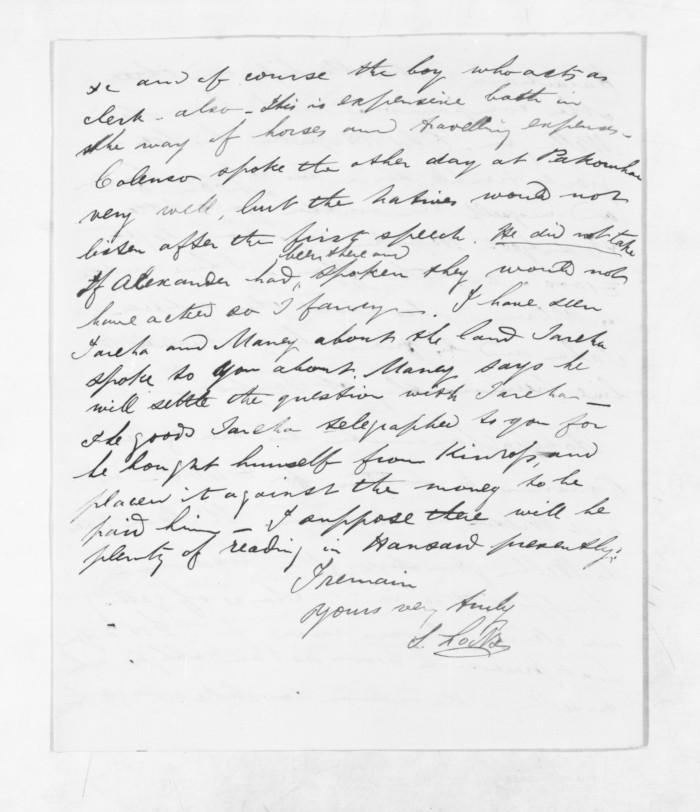 &c and of course the boy who acts as
clerk - also - this is expensive both in
the way of horses and travelling expenses -
Colenso spoke the other day at Pakowhai
very well, but the natives would not
listen after the first speech. He did not take
been there and
If Alexander had, spoken they would not
have acted so I fancy -. I have seen
Tareha and Maney about the land Tareha
spoke to you about. Maney says he
will settle the question with Tareha -
The goods Tareha telegraphed to you for
he bought himself from Kinross, and
placed it against the money to be
paid him - I suppose there will be
plenty of reading in Hansard presently.
I remain
Yours very truly